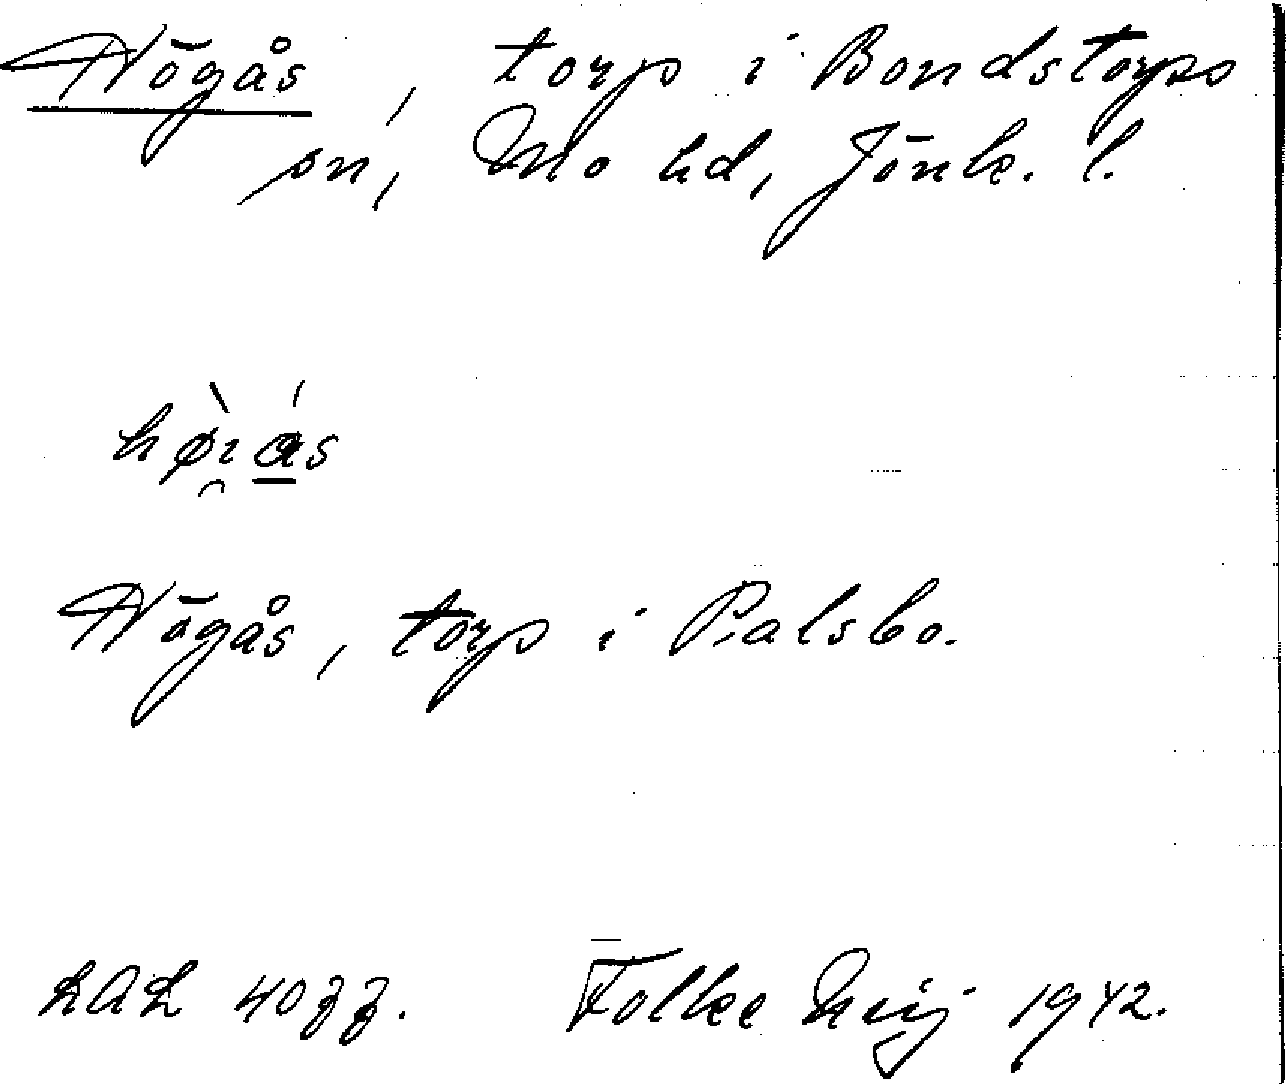 Högås, torp i Bondstorps
sn, Mo hd, Jönk. l.
Högås, torp i Palsbo.
LAL 4033. Folke 1942.